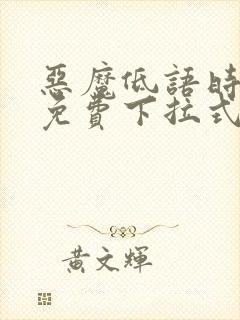 惡魔低語時
免費下拉式
黃文輝